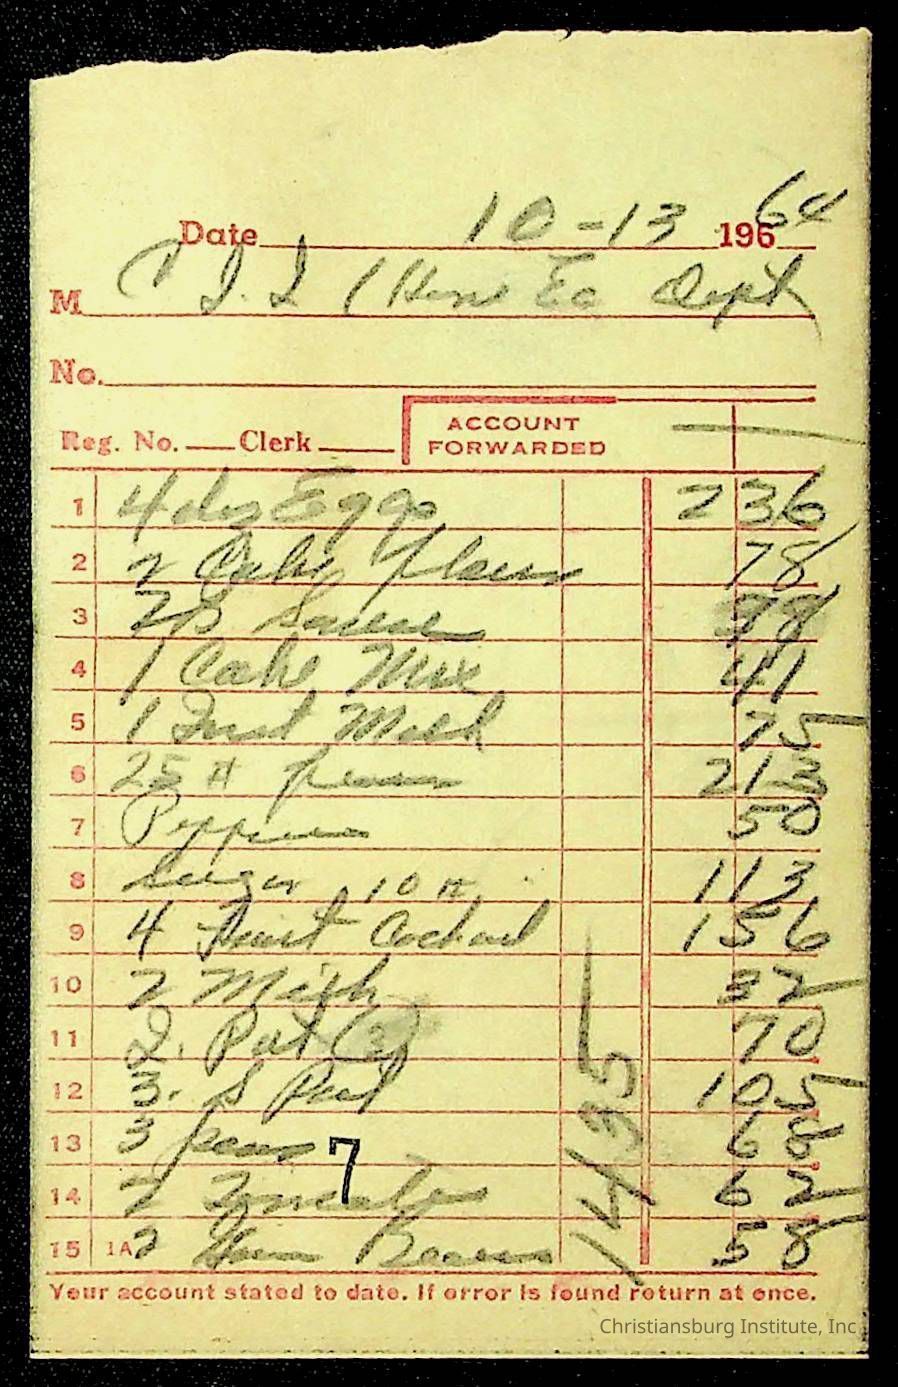 Date 10-13 1964
M C I I (Home Ec Dept
No.
Reg. No. Clerk
ACCOUNT
FORWARDED
1 4 doz Eggs 2 36
2 2 Cake flour 78
3 2
4 1 Cake Mix 41
5 1 Inst Milk 75
6 25 # 2 13
7 50
8 Sugar 10 # 1 13
9 4 Fruit Cocktail 1 56
10 2 32
11 2. 70
12 3. 1 05
13 3 peas 68
14 2 Tomatoes 62
15 1A 2 Beans 58
1435
7
Your account stated to date. If error is found return at once.
Christiansburg Institute, Inc